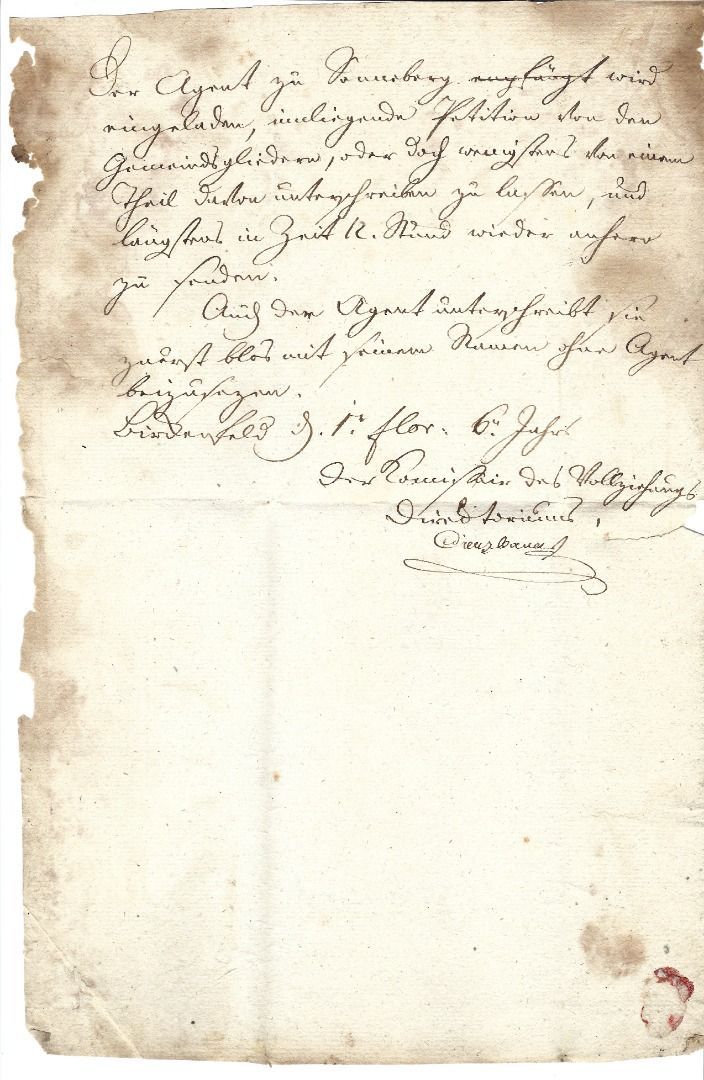 Der Agent zu Sonneberg empfängt wird
eingeladen, inliegende Petition von den
Gemeindsgliedern, oder doch wenigstens von einem
Theil davon unterschreiben zu lassen, und
längstens in Zeit 12. Stund wieder anhero
zu senden.
Auch der Agent unterschreibt sie
zuerst blos mit seinem Namen ohne Agent
beizusezen.
Birckenfeld d. 1n flor: 6n Jahrs
Der Komissair des Vollziehungs
Direktoriums,